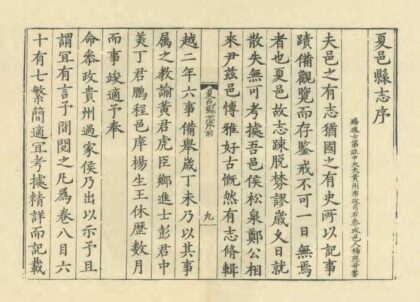 夏邑縣志序
夫邑之有志猶國之有史所以記事
蹟備觀覽而存鑒戒不可一日無焉
者也夏邑故志踈脱棼謬歲久日就
散失無可考據吾邑侯松泉鄭公相
來尹兹邑博雅好古慨然有志脩輯
夏邑縣志序前
九
越二年六事備舉歲丁未乃以其事
属之教諭黄君虎臣鄉進士彭君中
美丁君鵬程邑庠楊生王休歷數月
而事竣適予奉
命叅政貴州過家侯乃出以示予且
謂宜有言予閲之凡為卷八目六
十有七繁簡適宜考據精詳而記載